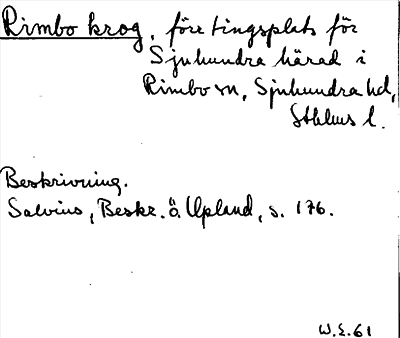 Rimbo krog, före tingsplats för
Sjuhundra härad i
Rimbo sn, Sjuhundra hd,
Sthlms l.
Beskrivning.
Salvius, Beskr. ö. Upland, s. 176.
W.E. 61